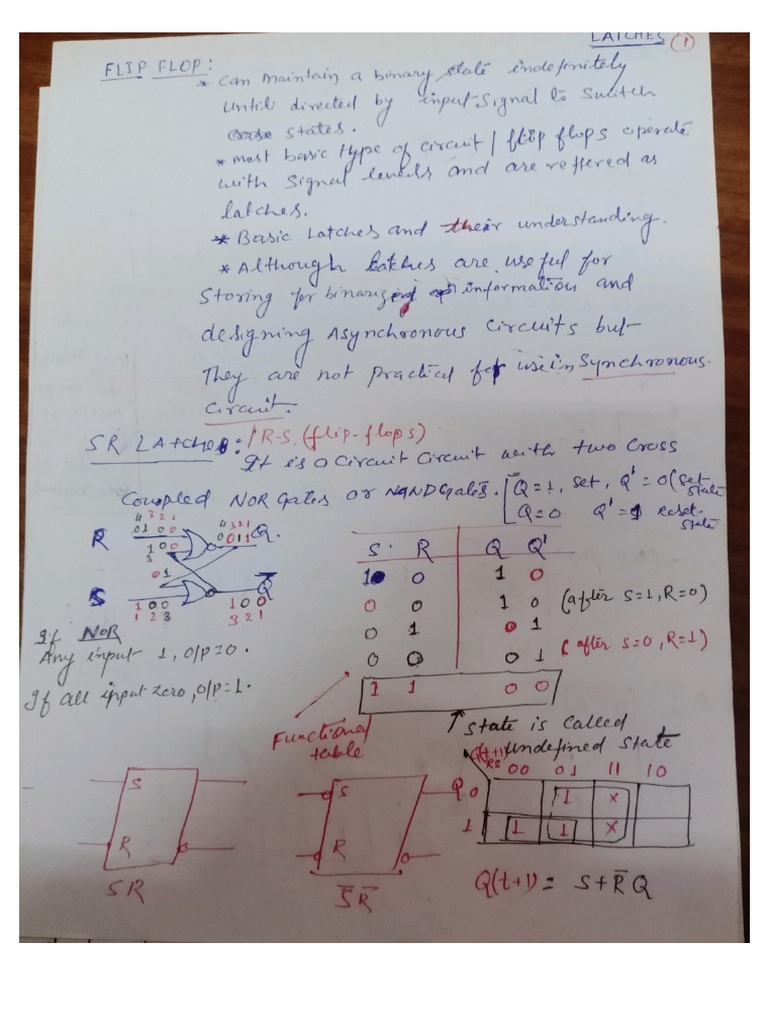 LATCHES 1
FLIP FLOP:
* Can maintain a binary state indefinitely
until directed by input signal to switch
states.
* most basic type of circuit / flip flops operate
with signal levels and are reffered as
latches.
* Basic Latches and their understanding.
* Although Latches are useful for
Storing for binary information and
designing Asynchronous circuits but
They are not practical for use in Synchronous
circuit.
SR Latches: / R-S. (flip-flops)
It is a circuit circuit with two cross
Coupled NOR Gates or NAND Gates.
Q=1, set, Q'=0 (set state
Q=0 Q'=1 reset state
R Q
S Q̅
If NOR
Any input 1, o/p=0.
If all input zero, o/p=1.
S R Q Q'
1 0 1 0
0 0 1 0 (after S=1, R=0)
0 1 0 1
0 0 0 1 (after S=0, R=1)
1 1 0 0
Functional table
state is called
undefined state
Q(t+1)
RS
00 01 11 10
Q 0 1 x
1 1 1 x
S
R
SR
S
R
S̅ R̅
Q(t+1) = S+R̅Q